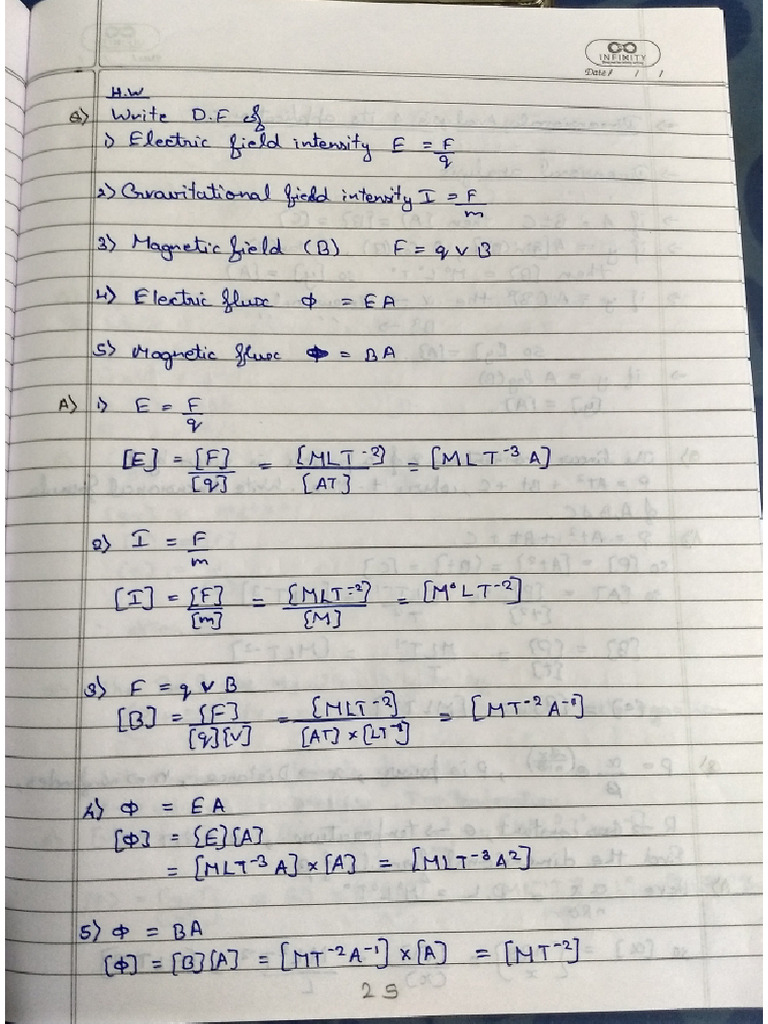 INFINITY
Date / / /
H.W
Q) Write D.F of
1) Electric field intensity E = F/q
2) Gravitational field intensity I = F/m
3) Magnetic field (B) F = q v B
4) Electric flux Φ = EA
5) Magnetic flux Φ = BA
A) 1) E = F/q
[E] = [F]/[q] = [MLT⁻²]/[AT] = [MLT⁻³A]
2) I = F/m
[I] = [F]/[m] = [MLT⁻²]/[M] = [M⁰LT⁻²]
3) F = q v B
[B] = [F]/[q][v] = [MLT⁻²]/[AT]×[LT⁻¹] = [MT⁻²A⁻¹]
4) Φ = EA
[Φ] = [E][A]
= [MLT⁻³A]×[A] = [MLT⁻³A²]
5) Φ = BA
[Φ] = [B][A] = [MT⁻²A⁻¹]×[A] = [MT⁻²]
25